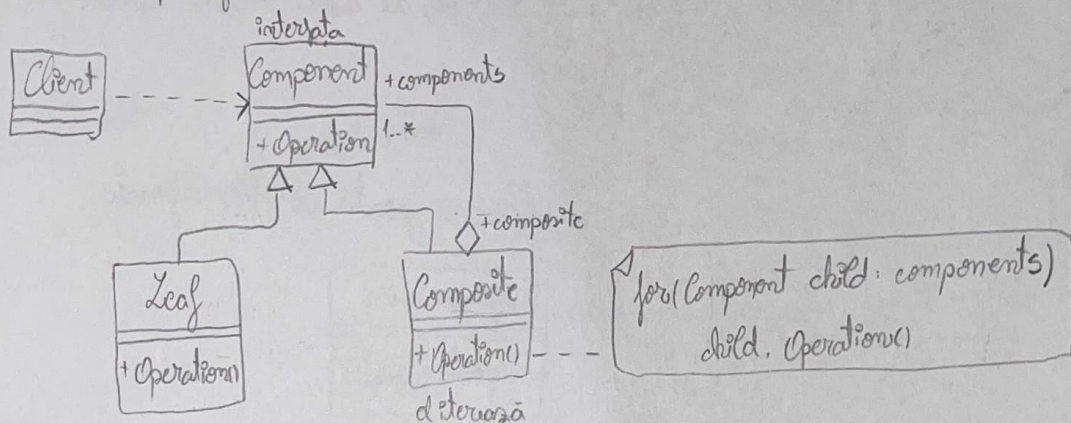 interfata
Client
Component
+ components
1..*
+ Operation
+composite
Leaf
+ Operation()
Composite
+ Operation()
for(Component child: components)
child. Operation()